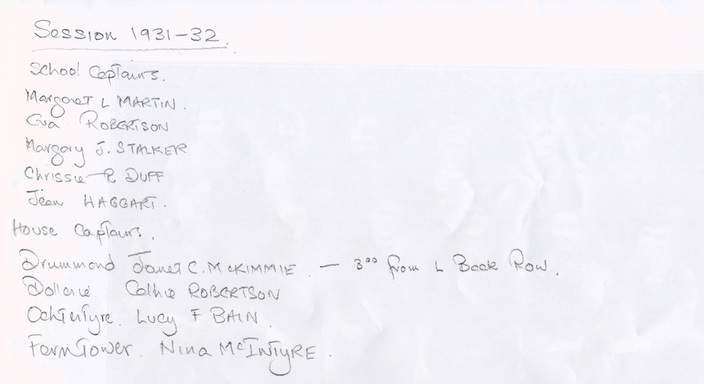 Session 1931-32.
School Captains.
Margaret L MARTIN.
Eva ROBERTSON
Margory J. STALKER
Chrissie R DUFF
Jean HAGGART.
House Captains.
Drummond Janet C. McKIMMIE. — 3rd from L Back Row.
Dollerie Cathie ROBERTSON
Ochtertyre. Lucy F BAIN.
FernTower. Nina McINTyRE.